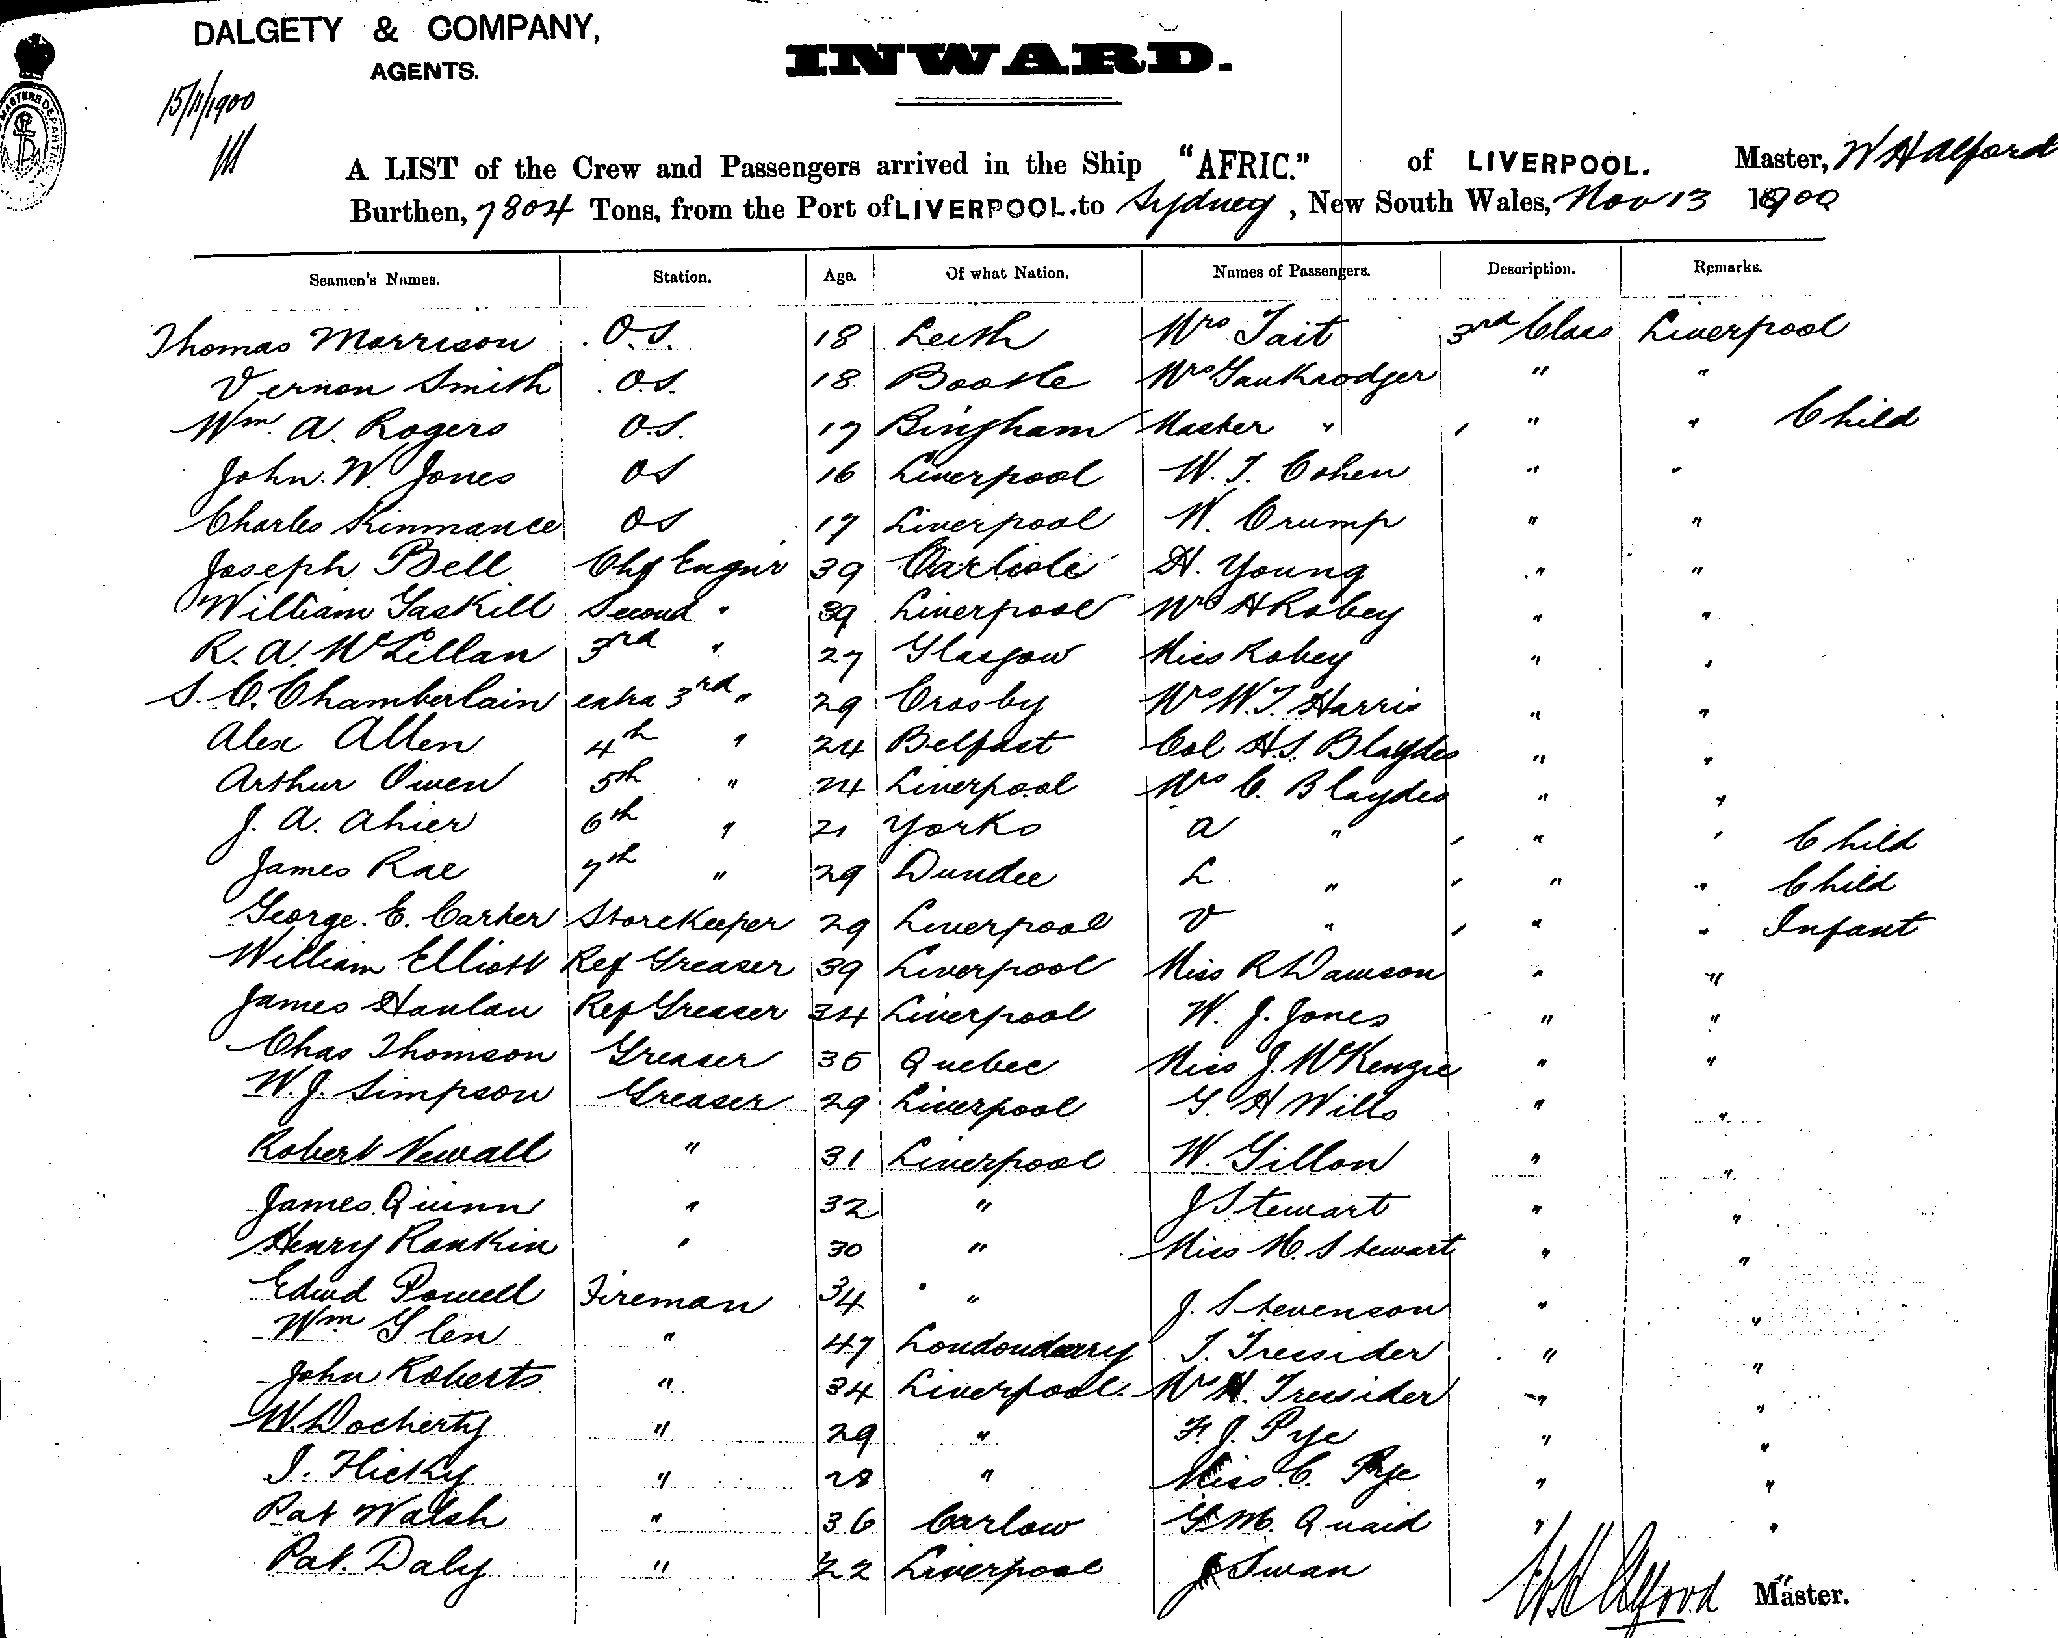 DALGETY & COMPANY,
AGENTS.
INWARD.
15/11/1900
A LIST of the Crew and Passengers arrived in the Ship "AFRIC." of LIVERPOOL. Master, W Halford
Burthen, 7804 Tons, from the Port of LIVERPOOL. to Sydney, New South Wales, Nov 13 1900
Seamen's Names. Station. Age. Of what Nation. Names of Passengers. Description. Remarks.
Thomas Morrison O.S. 18 Leith Mrs Tait 3rd Class Liverpool
Vernon Smith O.S. 18 Bootle Mrs Gaukrodger " "
Wm. A. Rogers O.S. 17 Bingham Master " " " Child
John. W. Jones OS 16 Liverpool W. T. Cohen " "
Charles Kinmance OS 17 Liverpool W. Crump " "
Joseph Bell Chf Engnr 39 Carlisle H. Young " "
William Gaskill Second " 39 Liverpool Mrs H Robey " "
R. A. McLellan 3rd " 27 Glasgow Miss Robey " "
S. C. Chamberlain extra 3rd " 29 Crosby Mrs W. T. Harris " "
Alex Allen 4th " 24 Belfast Col H.S. Blaydes " "
Arthur Owen 5th " 24 Liverpool Mrs C. Blaydes " "
J. A. Ahier 6th " 21 Yorks A " " " Child
James Rae 7th " 29 Dundee L " " " Child
George. E. Carter Storekeeper 29 Liverpool V " " " Infant
William Elliott Ref Greaser 39 Liverpool Miss R Dawson " "
James Hanlan Ref Greaser 34 Liverpool W. J. Jones " "
Chas Thomson Greaser 35 Quebec Miss J. McKenzie " "
W. J. Simpson Greaser 29 Liverpool G. H Wills " "
Robert Newall " 31 Liverpool W. Gillon " "
James Quinn " 32 " J Stewart " "
Henry Rankin " 30 " Miss M. Stewart " "
Edwd Powell Fireman 34 " J. Stevenson " "
Wm Glen " 47 Londonderry T. Tressider " "
John Roberts " 34 Liverpool Mrs H. Tressider " "
W. Docherty " 29 " F. J. Pye " "
J. Hicky " 28 " Miss C. Pye " "
Pat Walsh " 36 Carlow G. M. Quaid " "
Pat. Daly " 22 Liverpool J Swan
W Halford Master.